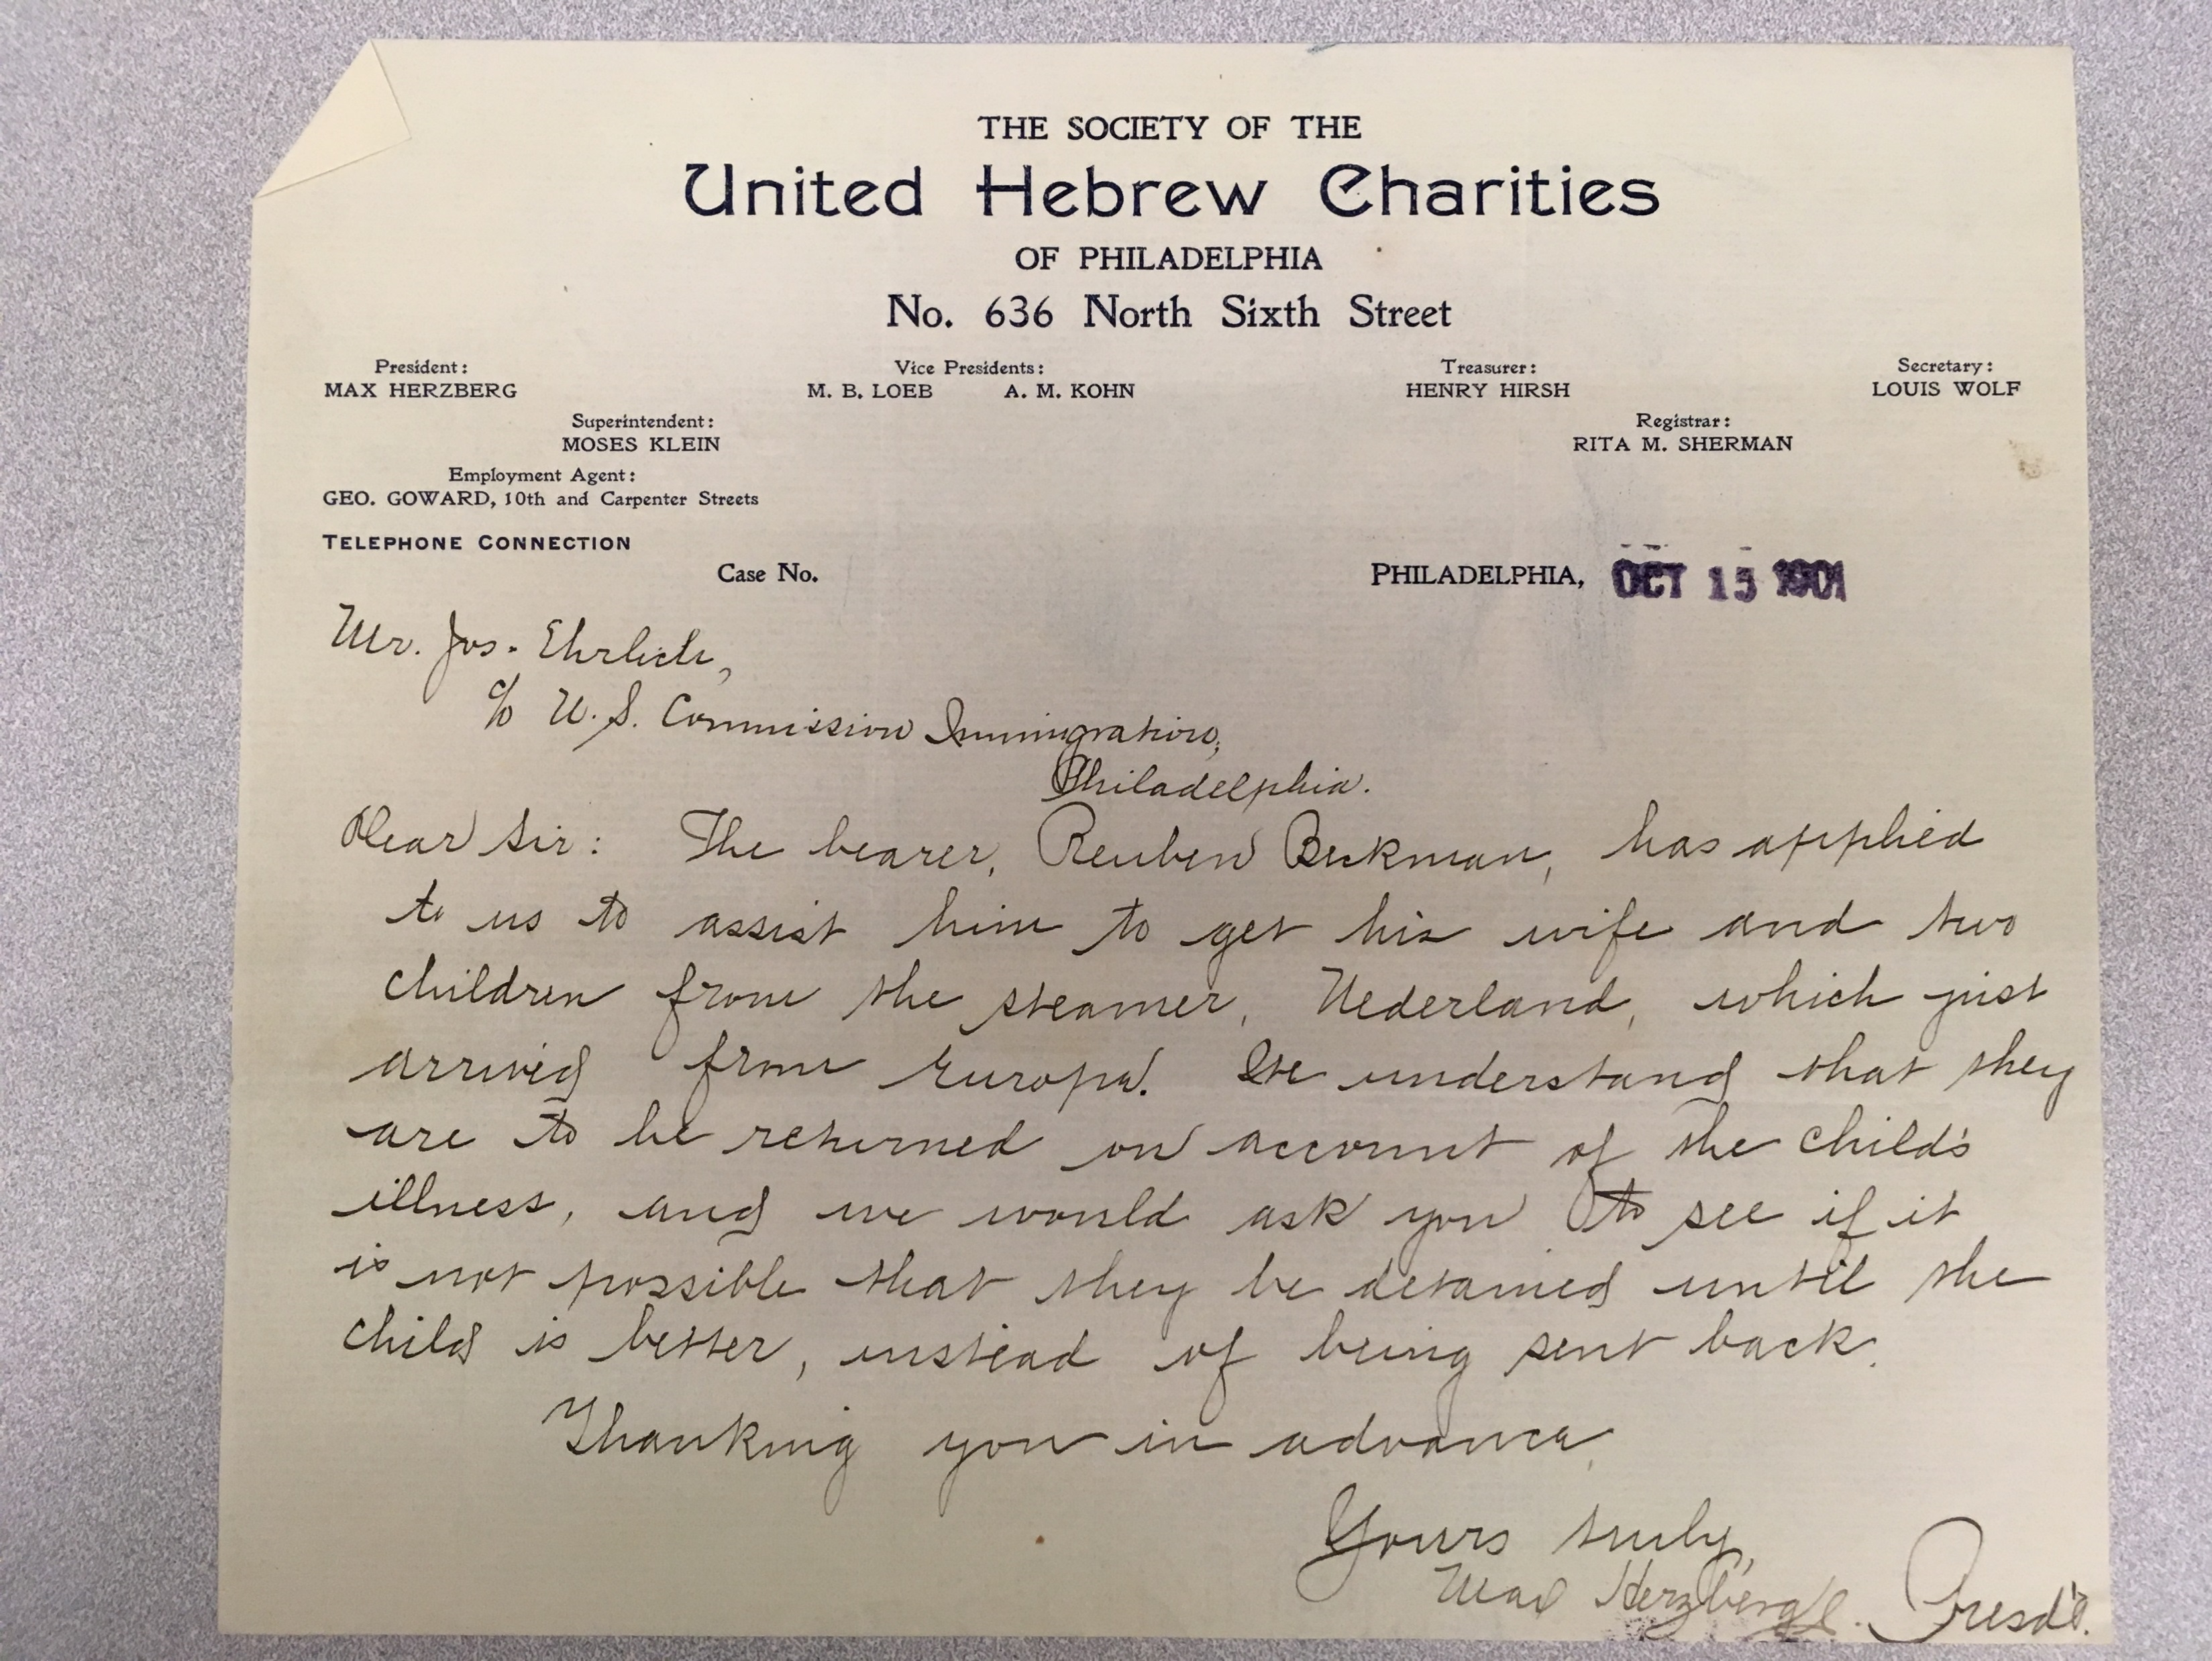 THE SOCIETY OF THE
United Hebrew Charities
OF PHILADELPHIA
No. 636 North Sixth Street
President: Vice Presidents: Treasurer: Secretary:
MAX HERZBERG M. B. LOEB A. M. KOHN HENRY HIRSH LOUIS WOLF
Superintendent: Registrar:
MOSES KLEIN RITA M. SHERMAN
Employment Agent:
GEO. GOWARD, 10th and Carpenter Streets
TELEPHONE CONNECTION
Case No. PHILADELPHIA, OCT 15 1901
Mr. Jos. Ehrlich,
c/o U.S. Commission Immigration,
Philadelphia.
Dear Sir: The bearer, Reuben Beckman, has applied
to us to assist him to get his wife and two
children from the steamer, Nederland, which just
arrived from Europe. We understand that they
are to be returned on account of the child's
illness, and we would ask you to see if it
is not possible that they be detained until the
child is better, instead of being sent back.
Thanking you in advance,
Yours truly,
Max Herzberg Presd't.